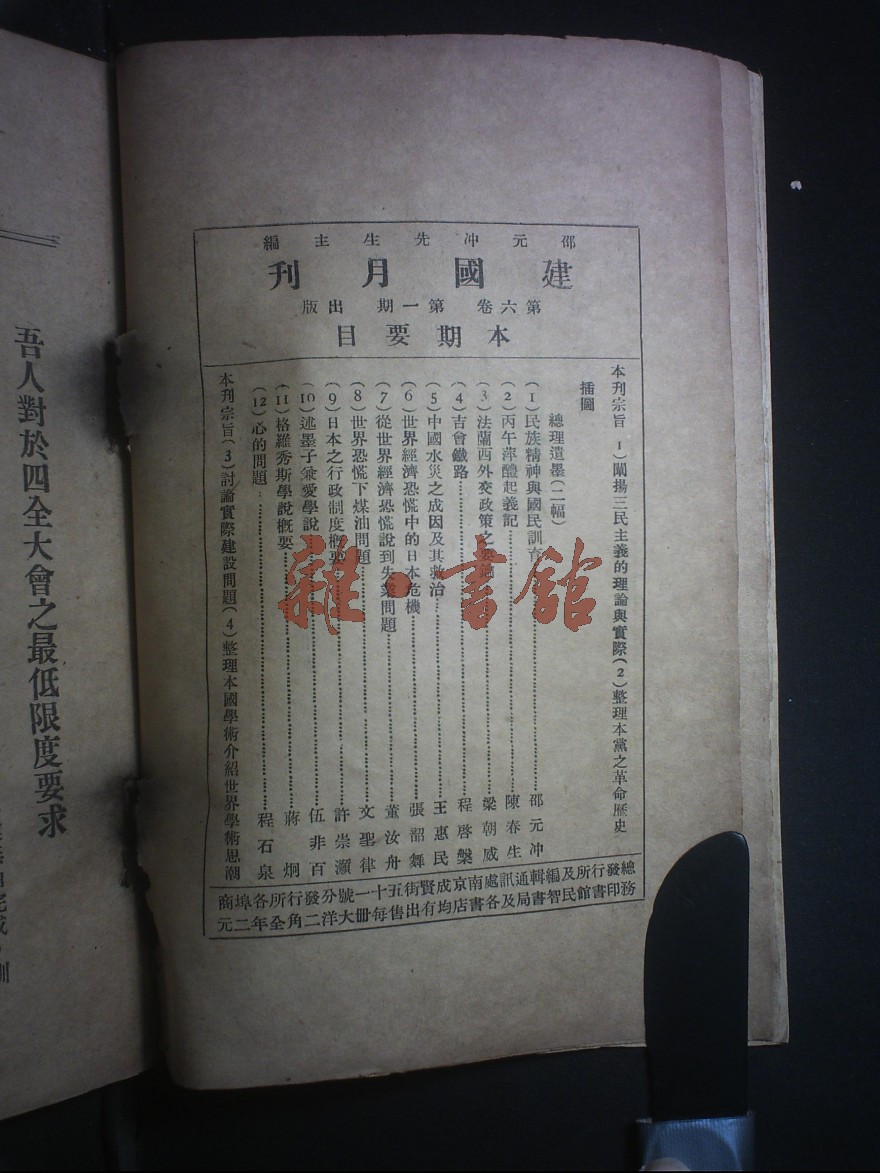 邵元冲先生主編
建國月刊
第六卷 第一期 出版
本期要目
本刊宗旨 1)闡揚三民主義的理論與實際(2)整理本黨之革命歷史
插圖
總理遺墨(二幅)
(1)民族精神與國民訓育……邵元冲
(2)丙午萍醴起義記……陳春生
(3)法蘭西外交政策之要鍵……梁朝威
(4)吉會鐵路……程啓槃
(5)中國水災之成因及其救治……王惠民
(6)世界經濟恐慌中的日本危機……張韶舞
(7)從世界經濟恐慌說到失業問題……董汝舟
(8)世界恐慌下煤油問題……文聖律
(9)日本之行政制度概要……許崇灝
(10)述墨子兼愛學說……伍非百
(11)格羅秀斯學說概要……蔣烱
(12)心的問題……程石泉
本刊宗旨(3)討論實際建設問題(4)整理本國學術介紹世界學術思潮
總發行所及編輯通訊處南京成賢街五十一號分發行所各埠商
務印書館民智書局及各書店均有出售每册大洋二角全年二元
吾人對於四全大會之最低限度要求
雜·書館